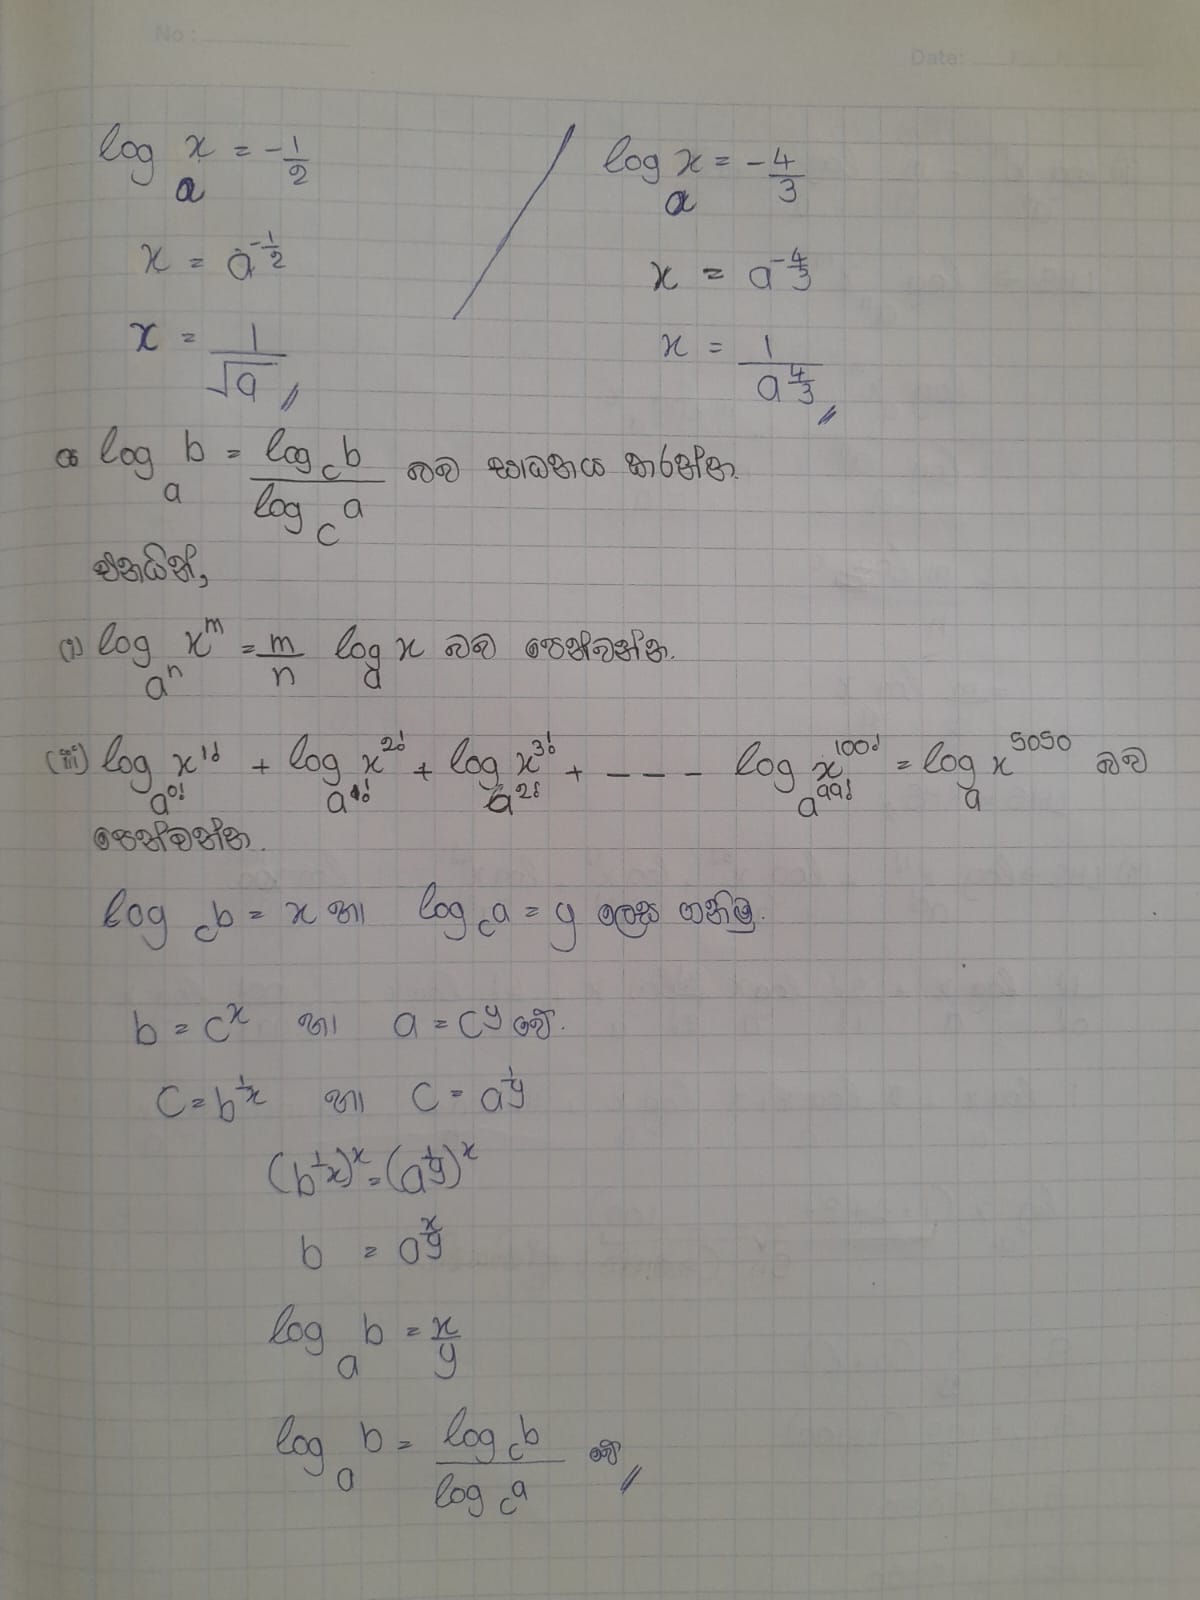 No :
Date:
log_a x = -1/2
x = a^(-1/2)
x = 1/√a
log_a x = -4/3
x = a^(-4/3)
x = 1/a^(4/3)
log_a b = log_c b / log_c a බව සාධනය කරන්න.
එනයින්,
(i) log_(a^n) x^m = m/n log_a x බව පෙන්වන්න.
(iii) log_(a^0!) x^1! + log_(a^1!) x^2! + log_(a^2!) x^3! + - - - - log_(a^99!) x^100! = log_a x^5050 බව
පෙන්වන්න.
log_c b = x හා log_c a = y ලෙස ගනිමු.
b = c^x හා a = c^y වේ.
c = b^(1/x) හා c = a^(1/y)
(b^(1/x))^x = (a^(1/y))^x
b = a^(x/y)
log_a b = x/y
log_a b = log_c b / log_c a වේ